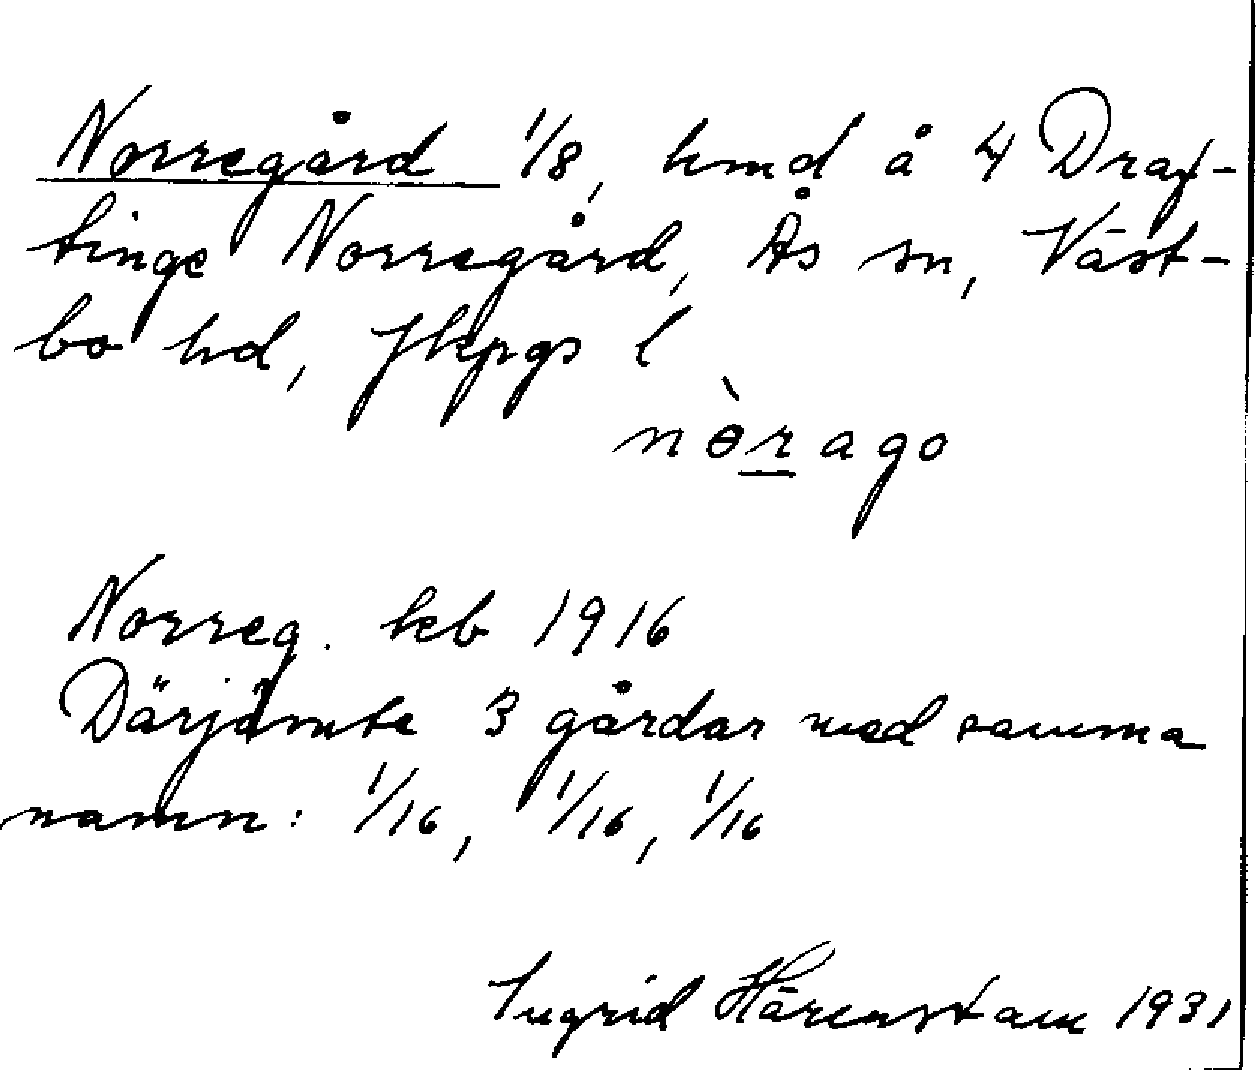 Norregård 1/8, hmd å 4 Draf-
tinge Norregård, Ås sn, Väst-
bo hd, Jkpgs l
nòrago
Norreg. kb 1916
Därjämte 3 gårdar med samma
namn: 1/16, 1/16, 1/16
Ingrid Härenstam 1931